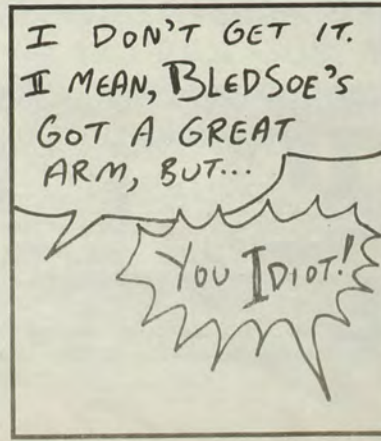 I DON'T GET IT.
I MEAN, BLEDSOE'S
GOT A GREAT
ARM, BUT...
YOU IDIOT!